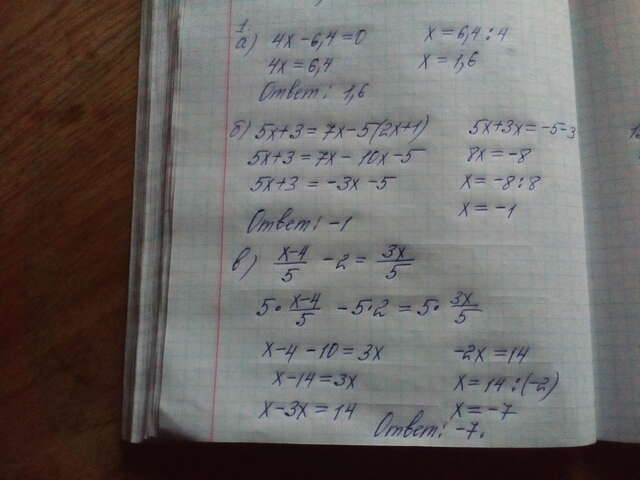 1.
а) 4x - 6,4 = 0
4x = 6,4
x = 6,4 : 4
x = 1,6
Ответ: 1,6
б) 5x+3 = 7x - 5(2x+1)
5x+3 = 7x - 10x - 5
5x+3 = -3x - 5
5x+3x = -5-3
8x = -8
x = -8 : 8
x = -1
Ответ: -1
в) \frac{x-4}{5} - 2 = \frac{3x}{5}
5 · \frac{x-4}{5} - 5 · 2 = 5 · \frac{3x}{5}
x - 4 - 10 = 3x
x - 14 = 3x
x - 3x = 14
-2x = 14
x = 14 : (-2)
x = -7
Ответ: -7.